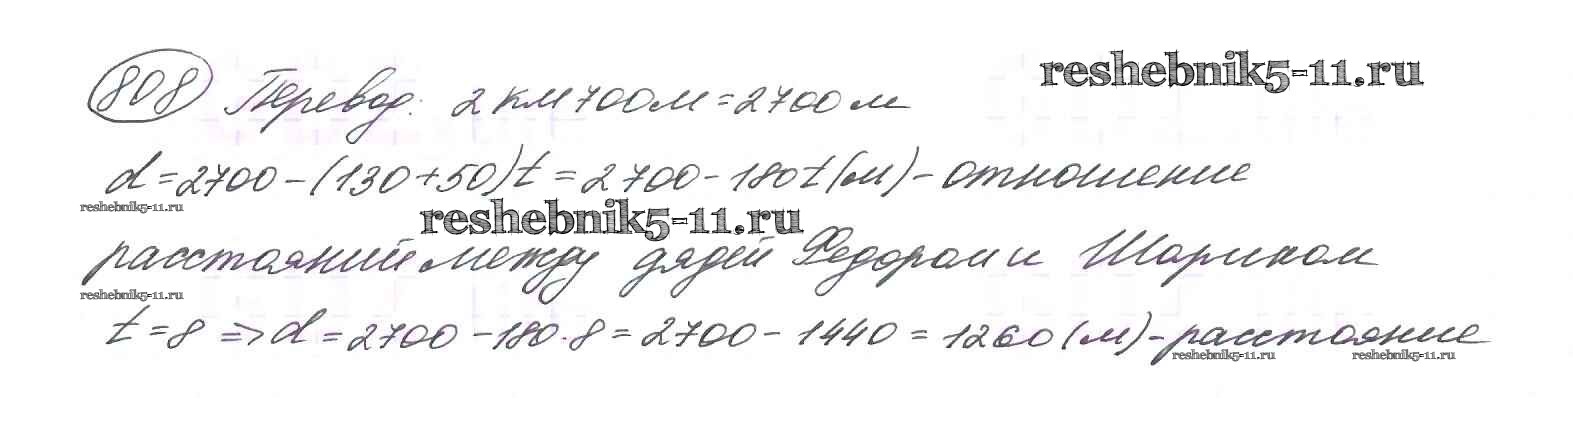 808 Перевод: 2 км 700 м = 2700 м
reshebnik5-11.ru
d = 2700 - (130 + 50)t = 2700 - 180t (м) - отношение
reshebnik5-11.ru
reshebnik5-11.ru
расстояний между дядей Федором и Шариком
reshebnik5-11.ru
t = 8 => d = 2700 - 180 · 8 = 2700 - 1440 = 1260 (м) - расстояние
reshebnik5-11.ru
reshebnik5-11.ru